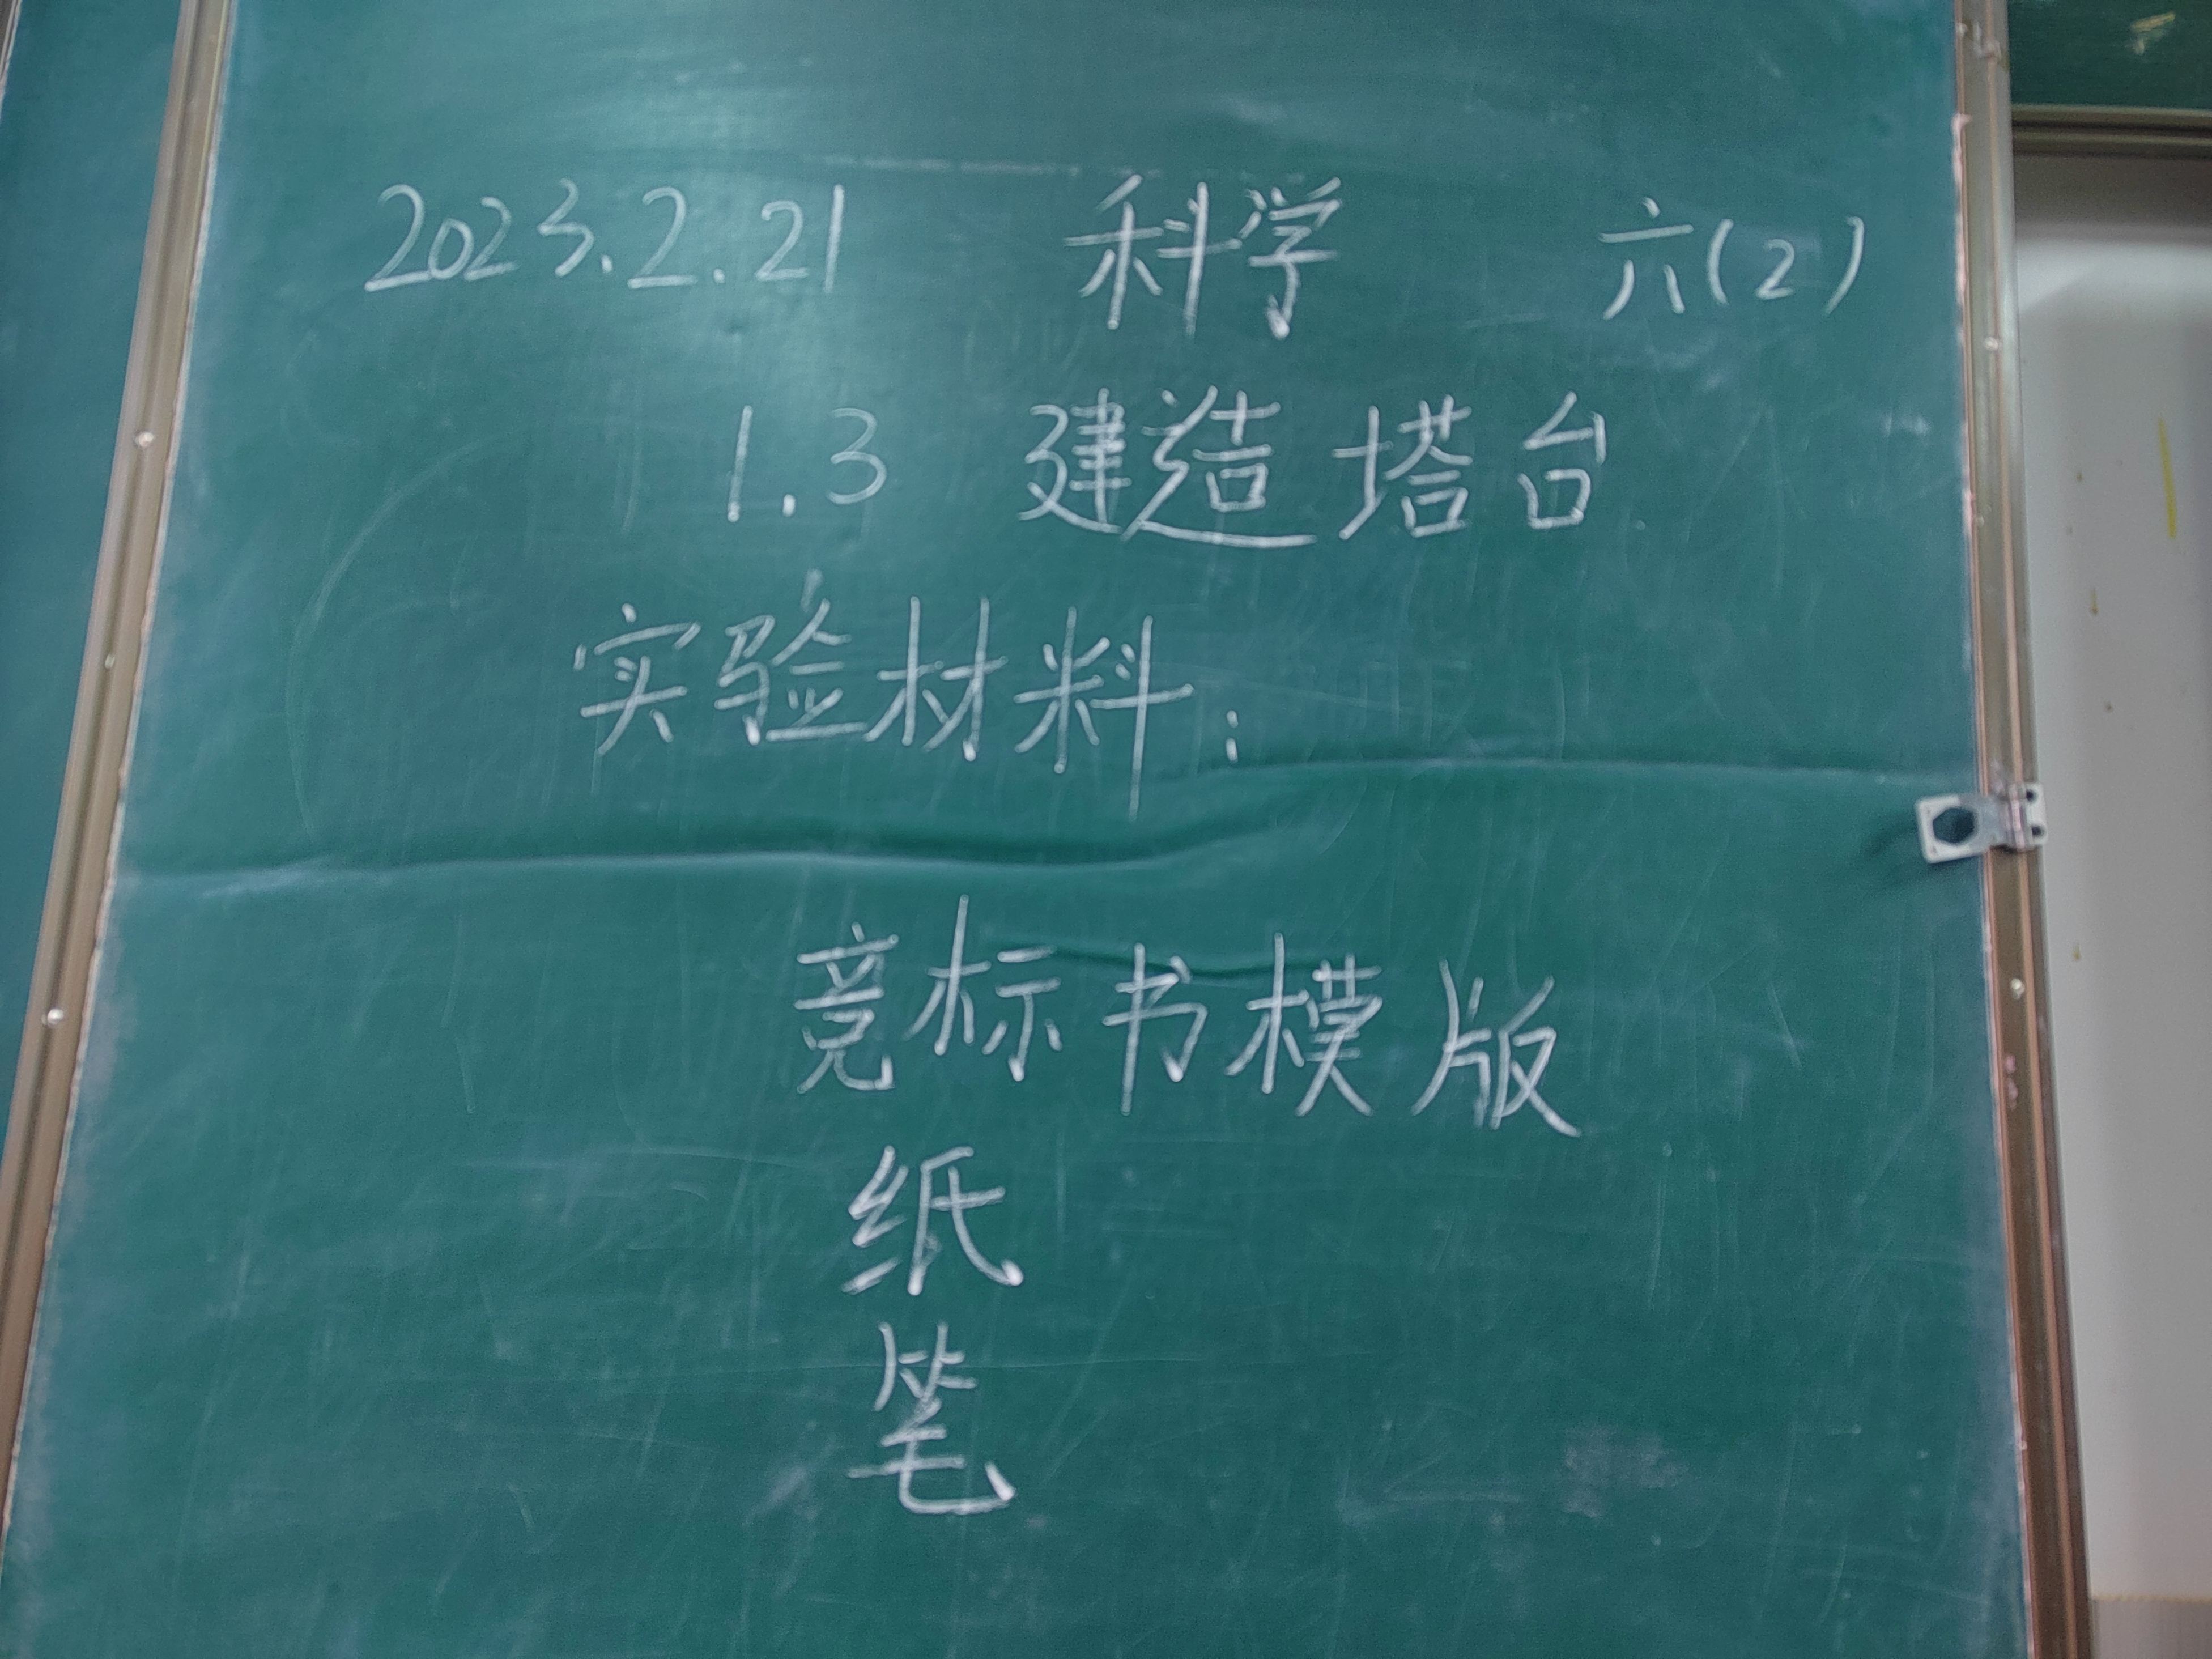 2023.2.21 科学 六(2)
1.3 建造塔台
实验材料:
竞标书模版
纸
笔